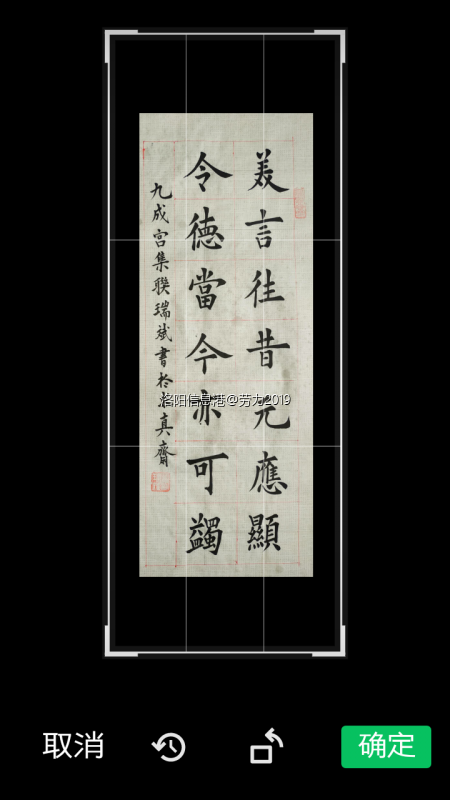 美言往昔元應顯
令德當今亦可蠲
九成宫集聯瑞斌書於真齋
洛阳信息港@劳力2019
取消
确定